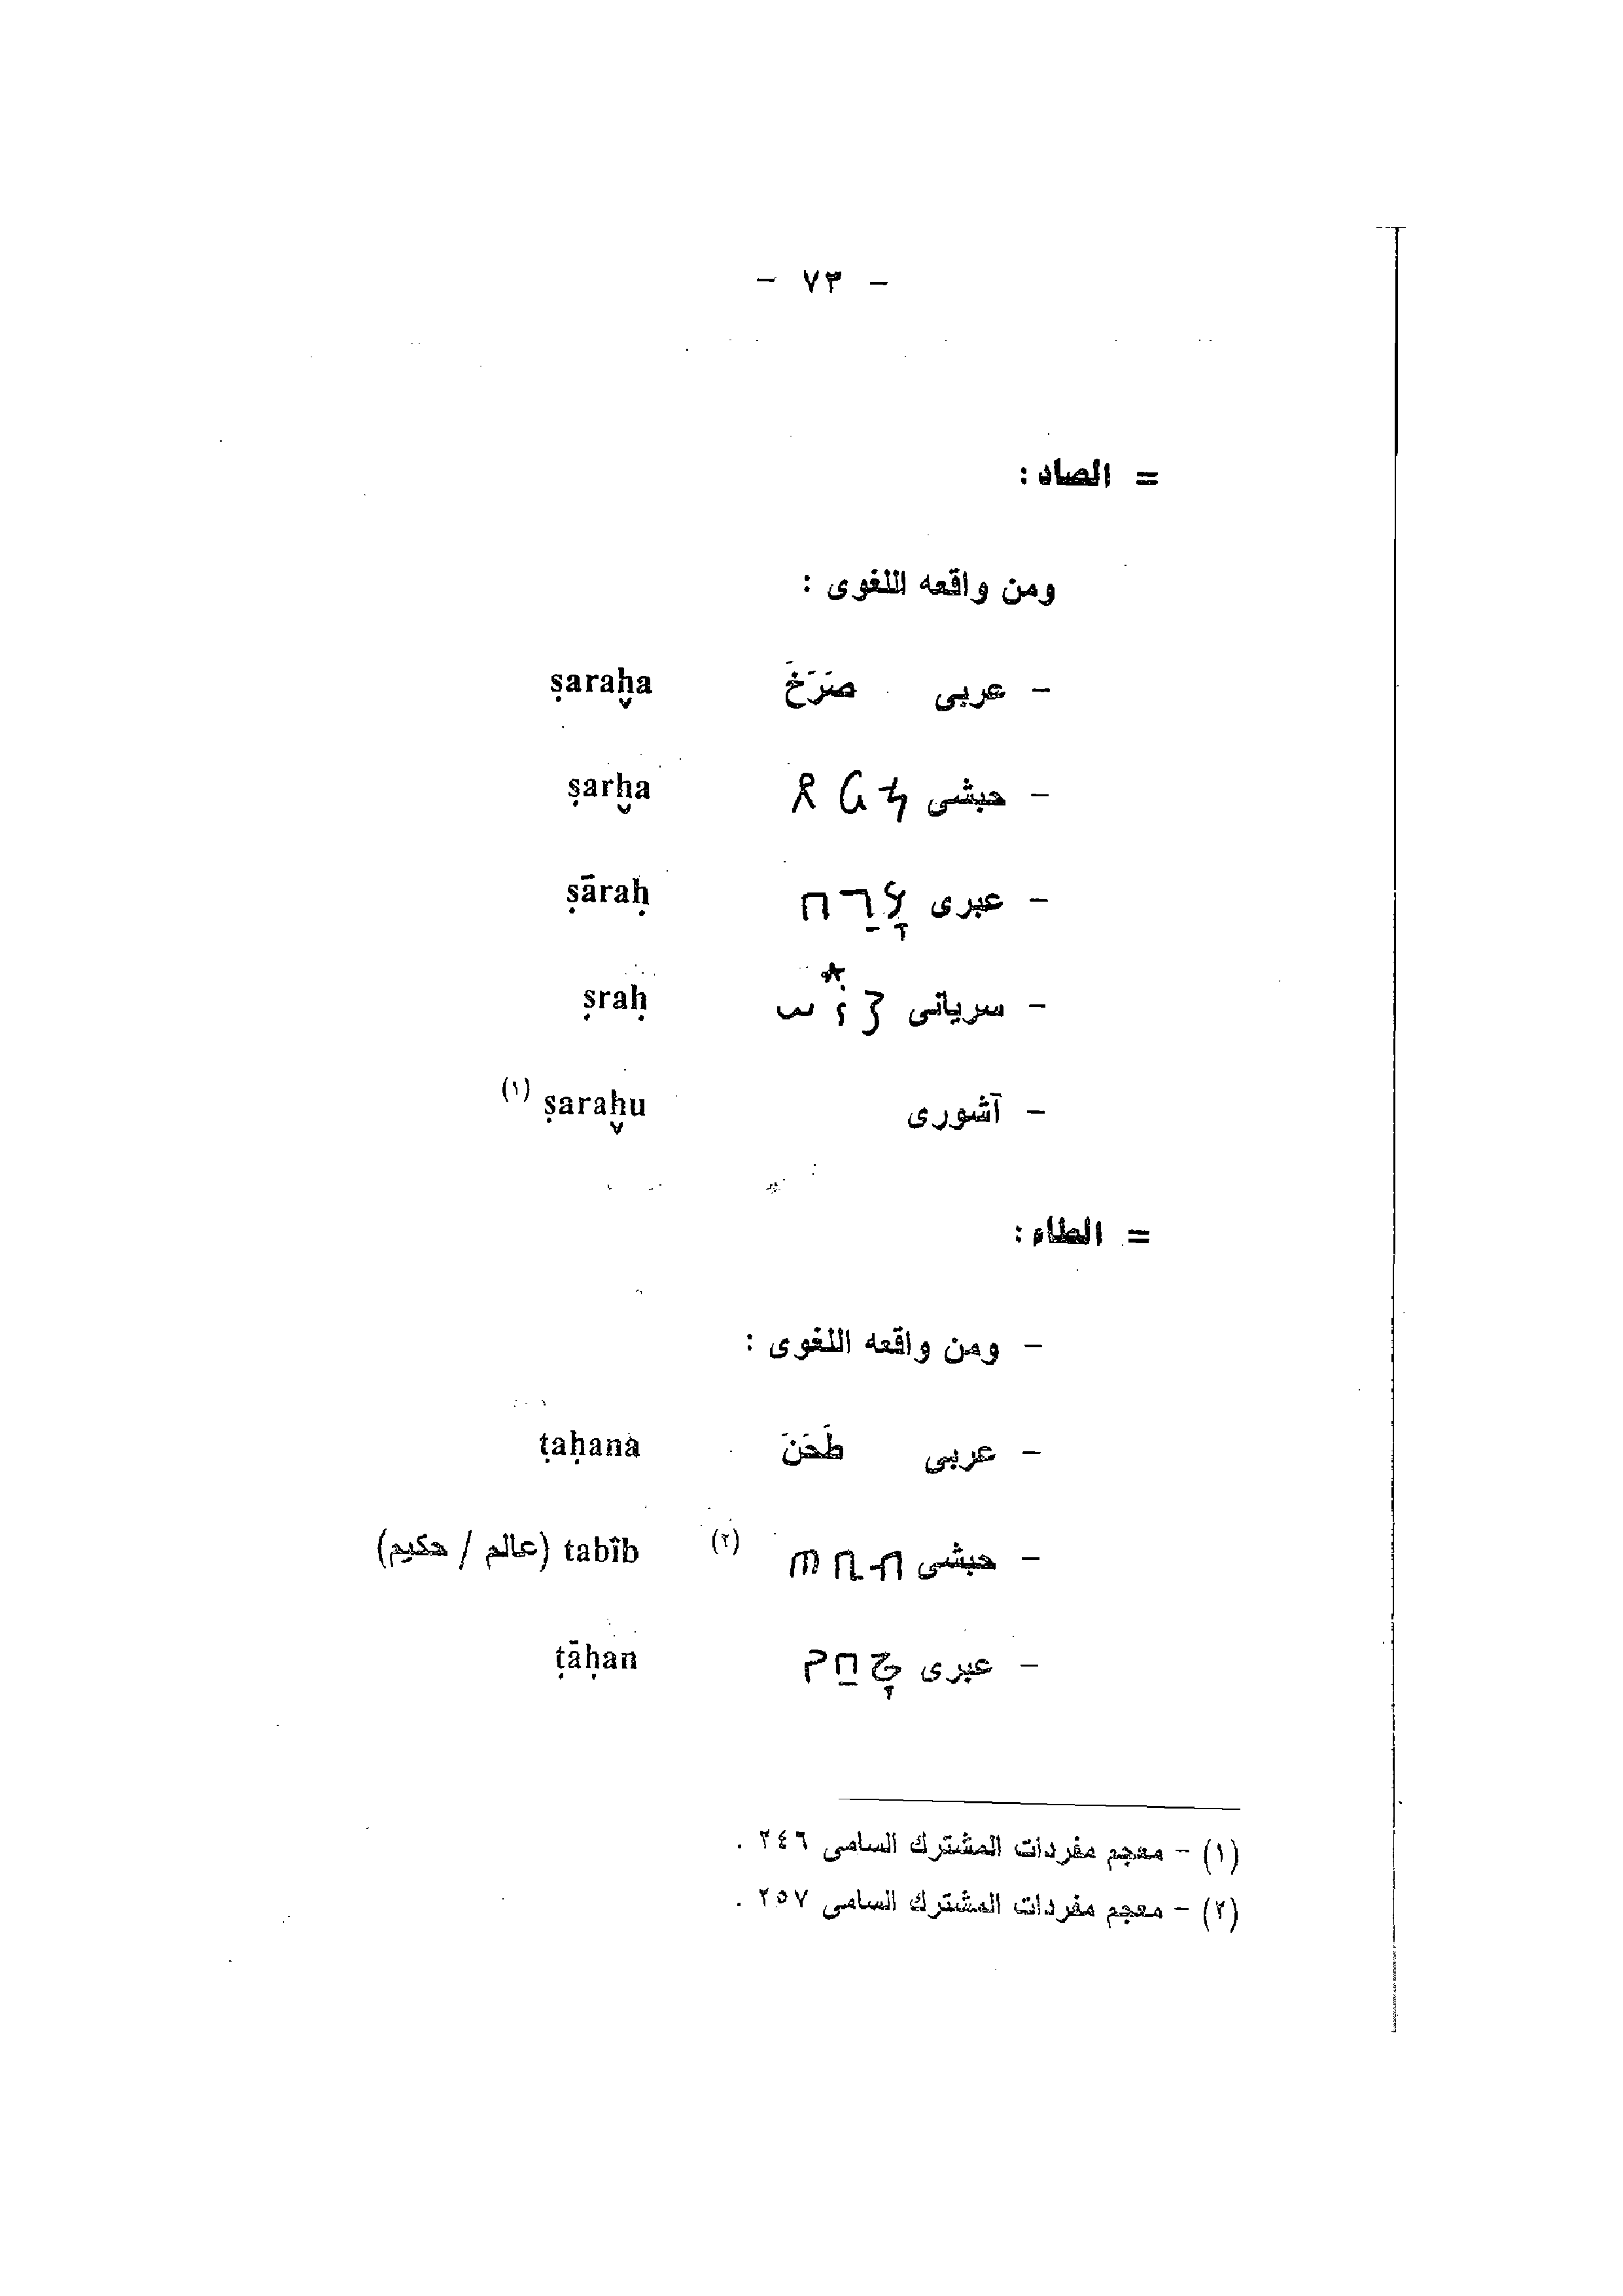 - ٧٣ -
= الصاد :
ومن واقعه اللغوى :
- عربى صَرَخَ ṣaraḫa
- حبشى ጸርኀ ṣarḫa
- عبرى צָרַח ṣāraḥ
- سريانى ܨܪܚ ṣraḥ
- آشورى ṣaraḫu (١)
= الطاء :
- ومن واقعه اللغوى :
- عربى طَحَنَ ṭaḥana
- حبشى ጠቢብ (٢) tabîb (عالم / حكيم)
- عبرى טָחַן ṭāḥan
(١) - معجم مفردات المشترك السامى ٢٤٦ .
(٢) - معجم مفردات المشترك السامى ٢٥٧ .